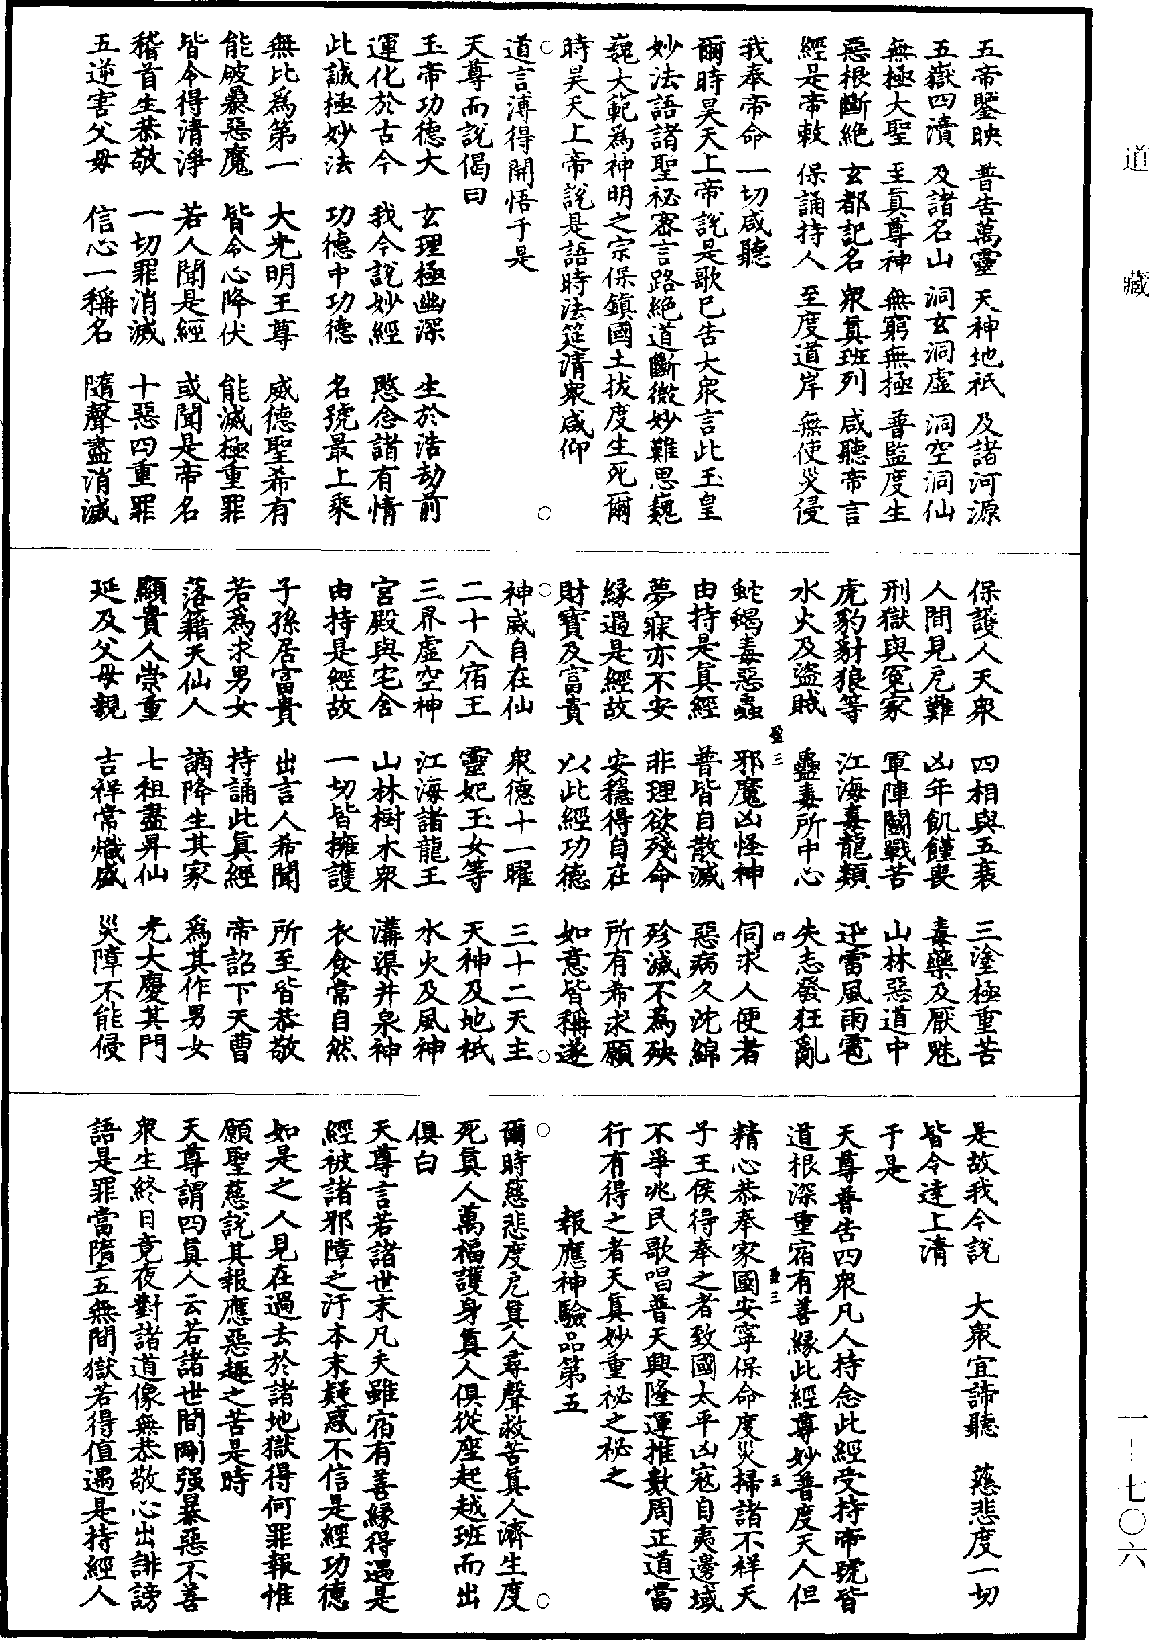 五帝鑒映　普告萬靈　天神地祇　及諸河源
五嶽四瀆　及諸名山　洞玄洞虛　洞空洞仙
無極大聖　至真尊神　無窮無極　普監度生
惡根斷絕　玄都記名　眾真班列　咸聽帝言
經是帝敕　保誦持人　至度道岸　無使災侵
我奉帝命　一切咸聽
爾時昊天上帝說是歌已告大眾言此玉皇
妙法語諸聖祕密言路絕道斷微妙難思巍
巍大範為神明之宗保鎮國土拔度生死爾
時昊天上帝說是語時法筵清眾咸仰
道言薄得開悟于是
天尊而說偈曰
玉帝功德大　玄理極幽深　生於浩劫前
運化於古今　我今說妙經　愍念諸有情
此誠極妙法　功德中功德　名號最上乘
無比為第一　大光明王尊　威德聖希有
能破暴惡魔　皆令心降伏　能滅極重罪
皆令得清淨　若人聞是經　或聞是帝名
稽首生恭敬　一切罪消滅　十惡四重罪
五逆害父母　信心一稱名　隨聲盡消滅
保護人天眾　四相與五衰　三塗極重苦
人間見厄難　凶年飢饉喪　毒藥及厭魅
刑獄與冤家　軍陣鬭戰苦　山林惡道中
虎豹豺狼等　江海毒龍類　迅雷風雨雹
水火及盜賊　蠱毒所中心　失志發狂亂
蛇蝎毒惡蟲　邪魔凶怪神　伺求人便者
由持是真經　普皆自散滅　惡病久沈綿
夢寐亦不安　非理欲殘命　殄滅不為殃
緣遇是經故　安穩得自在　所有希求願
財寶及富貴　以此經功德　如意皆稱遂
神威自在仙　眾德十一曜　三十二天主
二十八宿王　靈妃玉女等　天神及地祇
三界虛空神　江海諸龍王　水火及風神
宮殿與宅舍　山林樹木眾　溝渠井泉神
由持是經故　一切皆擁護　衣食常自然
子孫居富貴　出言人希聞　所至皆恭敬
若為求男女　持誦此真經　帝詔下天曹
落籍天仙人　謫降生其家　為其作男女
顯貴人崇重　七祖盡昇仙　光大慶其門
延及父母親　吉祥常熾盛　災障不能侵
是故我今說　大眾宜諦聽　慈悲度一切
皆令達上清
于是
天尊普告四眾凡人持念此經受持帝號皆
道根深重宿有善緣此經尊妙普度天人但
精心恭奉家國安寧保命度災掃諸不祥天
子王侯得奉之者致國太平凶寇自夷邊域
不爭兆民歌唱普天興隆運推數周正道當
行有得之者天真妙重祕之祕之
報應神驗品第五
爾時慈悲度厄真人尋聲救苦真人濟生度
死真人萬福護身真人俱從座起越班而出
俱白
天尊言若諸世末凡夫雖宿有善緣得遇是
經被諸邪障之汙本末疑惑不信是經功德
如是之人見在過去於諸地獄得何罪報惟
願聖慈說其報應惡趣之苦是時
天尊謂四真人云若諸世間剛强暴惡不善
眾生終日竟夜對諸道像無恭敬心出誹謗
語是罪當墮五無間獄若得值遇是持經人
道　藏
一-七〇六